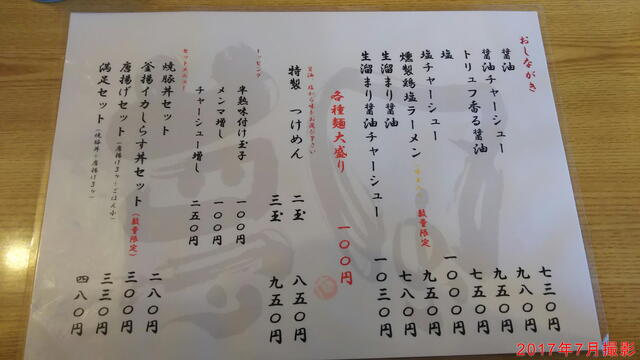 おしながき
醤油 七三〇円
醤油チャーシュー 九八〇円
トリュフ香る醤油 七五〇円
塩 七五〇円
塩チャーシュー 一〇〇〇円
燻製鶏塩ラーメン 数量限定 九五〇円
生溜まり醤油 七八〇円
生溜まり醤油チャーシュー 一〇三〇円
各種麺大盛り 一〇〇円
醤油、塩から味をお選び下さい
特製 つけめん 二玉 八五〇円
三玉 九五〇円
トッピング
半熟味付け玉子 一〇〇円
メンマ増し 一〇〇円
チャーシュー増し 二五〇円
セットメニュー
焼豚丼セット 二八〇円
釜揚イカしらす丼セット(数量限定) 三〇〇円
唐揚げセット(唐揚げ3ヶ+ごはん小) 三三〇円
満足セット(焼豚丼+唐揚げ3ヶ) 四八〇円
2017年7月撮影